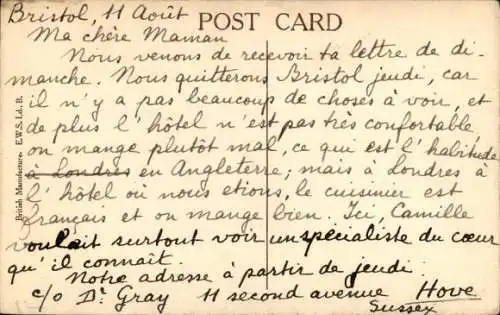 Bristol, 11 Août
POST CARD
Ma chère Maman
Nous venons de recevoir ta lettre de di-
manche. Nous quitterons Bristol jeudi, car
il n'y a pas beaucoup de choses à voir, et
de plus l'hôtel n'est pas très confortable,
on mange plutôt mal, ce qui est l'habitude
à Londres en Angleterre; mais à Londres à
l'hôtel où nous etions, le cuisinier est
français et on mange bien. Ici, Camille
voulait surtout voir un spécialiste du cœur
qu'il connait.
Notre adresse à partir de jeudi:
c/o Dr Gray 11 second avenue Hove
Sussex
British Manufacture. E.W.S. Ld. B.